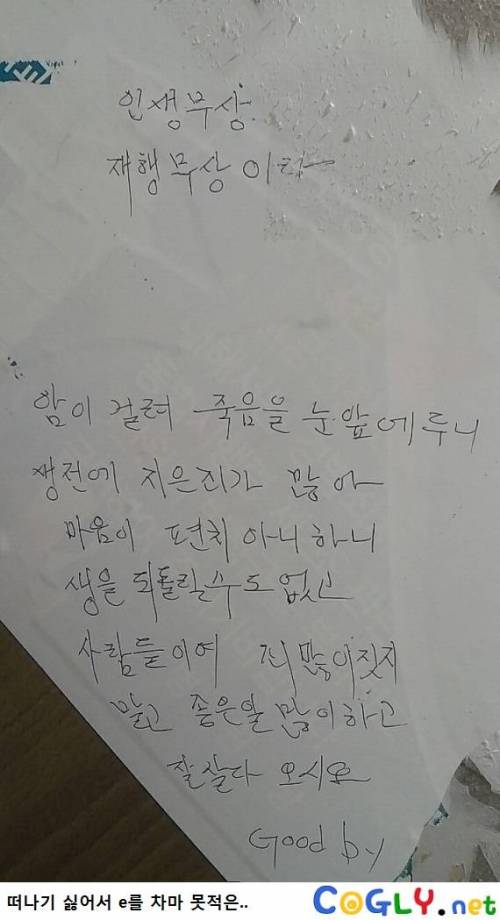 인생무상
재행무상이라
암이 걸려 죽음을 눈앞에두니
생전에 지은죄가 많아
마음이 편치 아니하니
생을 되돌릴수도 없고
사람들이여 죄많이짓지
말고 좋은일 많이하고
잘살다 오시요
Good by
떠나기 싫어서 e를 차마 못적은..
COGLY.net